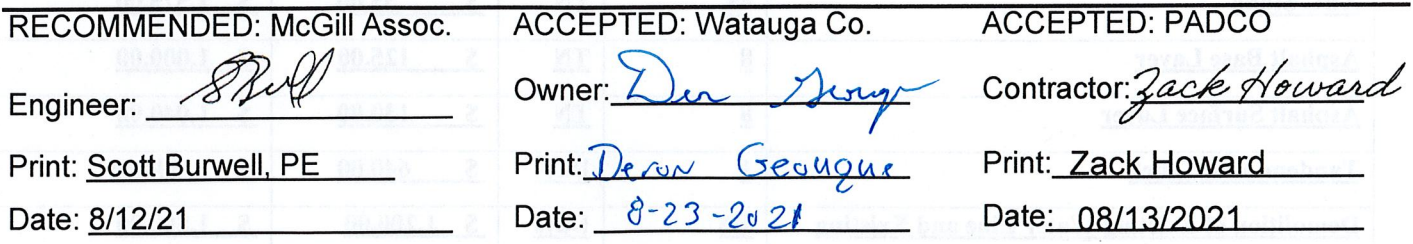 RECOMMENDED: McGill Assoc.
Engineer:
Print: Scott Burwell, PE
Date: 8/12/21
ACCEPTED: Watauga Co.
Owner:
Print: Deron Geouque
Date: 8-23-2021
ACCEPTED: PADCO
Contractor: Zack Howard
Print: Zack Howard
Date: 08/13/2021